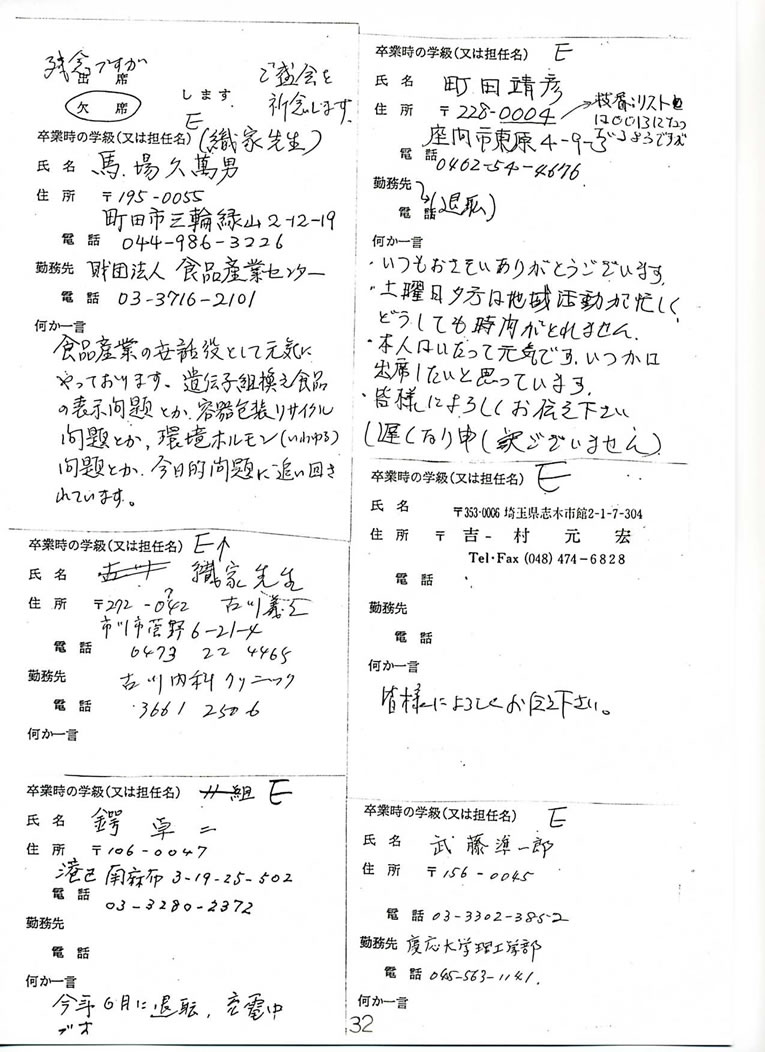 残念ですが
出席
欠席
します
ご盛会を
祈念します
E
卒業時の学級(又は担任名)(織家先生)
氏名 馬場久萬男
住所 〒195-0055
町田市三輪緑山2-12-19
電話 044-986-3226
勤務先 財団法人 食品産業センター
電話 03-3716-2101
何か一言
食品産業の世話役として元気に
やっております、遺伝子組換え食品
の表示問題とか、容器包装リサイクル
問題とか、環境ホルモン(いわゆる)
問題とか、今日的問題に追い回さ
れています。
卒業時の学級(又は担任名) E↑
氏名 織家先生
住所 〒272-042 古川
?
市川市菅野6-21-4
電話 0473 22 4465
勤務先 古川内科クリニック
電話 3661 2506
何か一言
卒業時の学級(又は担任名) 組 E
氏名 鍔 卓二
住所 〒106-0047
港区南麻布3-19-25-502
電話 03-3280-2372
勤務先
電話
何か一言
今年6月に退転、充電中
です
卒業時の学級(又は担任名) E
氏名 町田靖彦
住所 〒228-0004 →枝番リスト
は0013になっ
座間市東原4-9-3
電話 0462-54-4676
勤務先
電話 (退転)
何か一言
・いつもおさそいありがとうございます.
・土曜日夕方は地域活動が忙しく
どうしても時間がとれません.
・本人はいたって元気です.いつかは
出席したいと思っています.
・皆様によろしくお伝え下さい
(遅くなり申し訳ございません)
卒業時の学級(又は担任名) E
氏名 〒353-0006 埼玉県志木市館2-1-7-304
住所 〒 吉-村 元宏
Tel・Fax (048) 474-6828
電話
勤務先
電話
何か一言
皆様によろしくお伝え下さい。
卒業時の学級(又は担任名) E
氏名 武藤準一郎
住所 〒156-0045
電話 03-3302-3852
勤務先 慶応大学理工学部
電話 045-563-1141.
何か一言
32